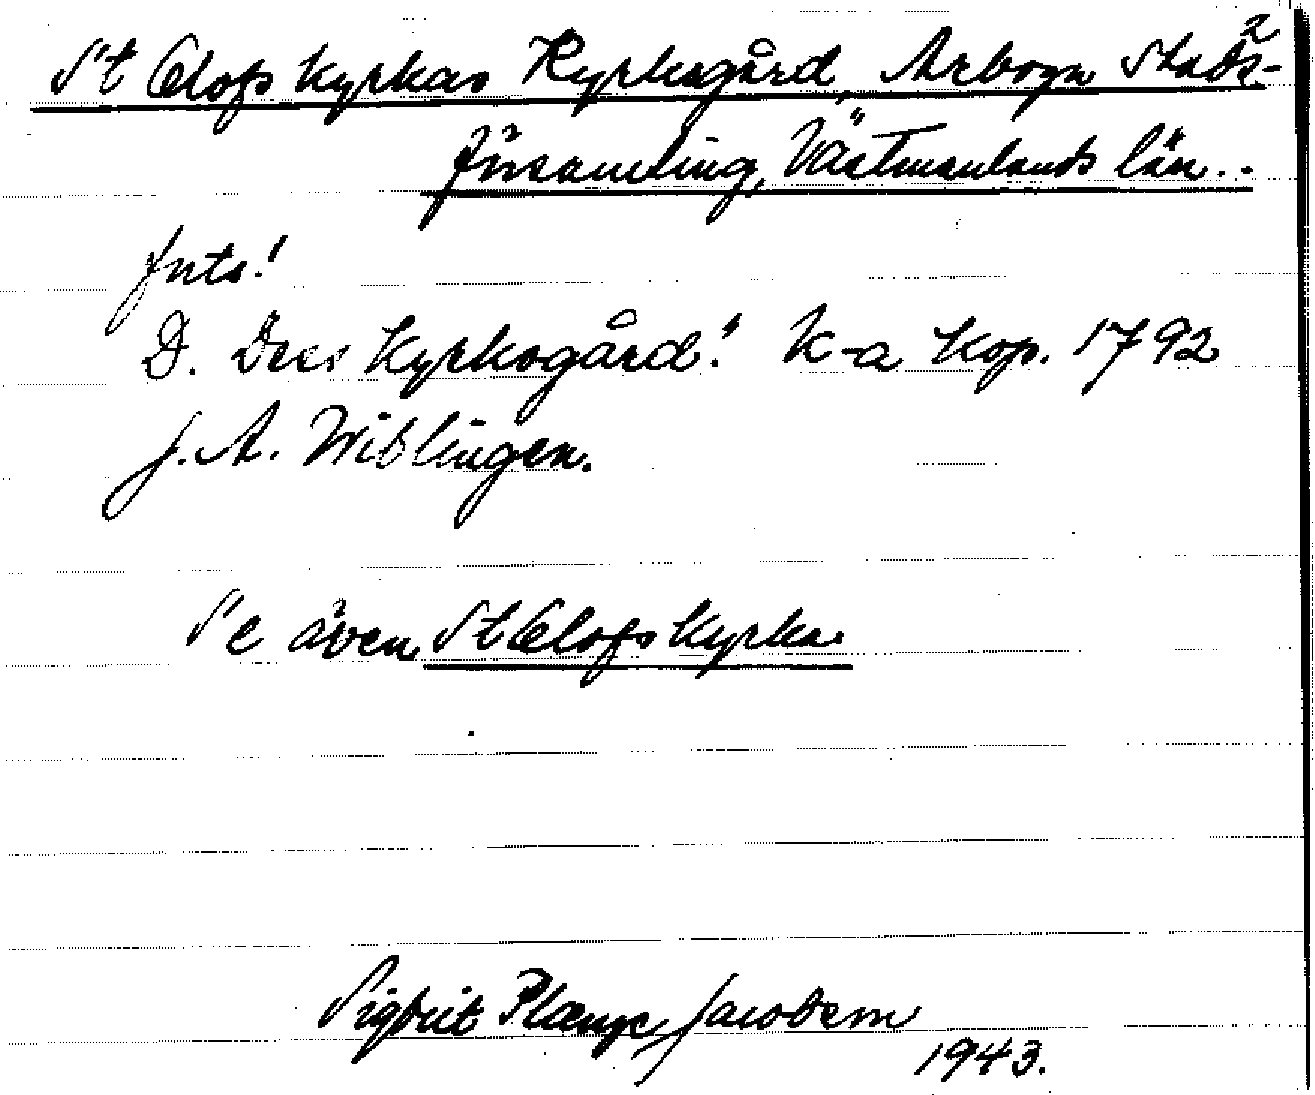 St Olofs Kyrkas Kyrkogård, Arboga Stads-
2
församling, Västmanlands län..
Juts!
D. Dess Kyrkogård! K-a Kop. 1792
J. A. Wiblingen.
Se även St Olofs Kyrka.
Sigbrit Plænge Jacobson
1943.